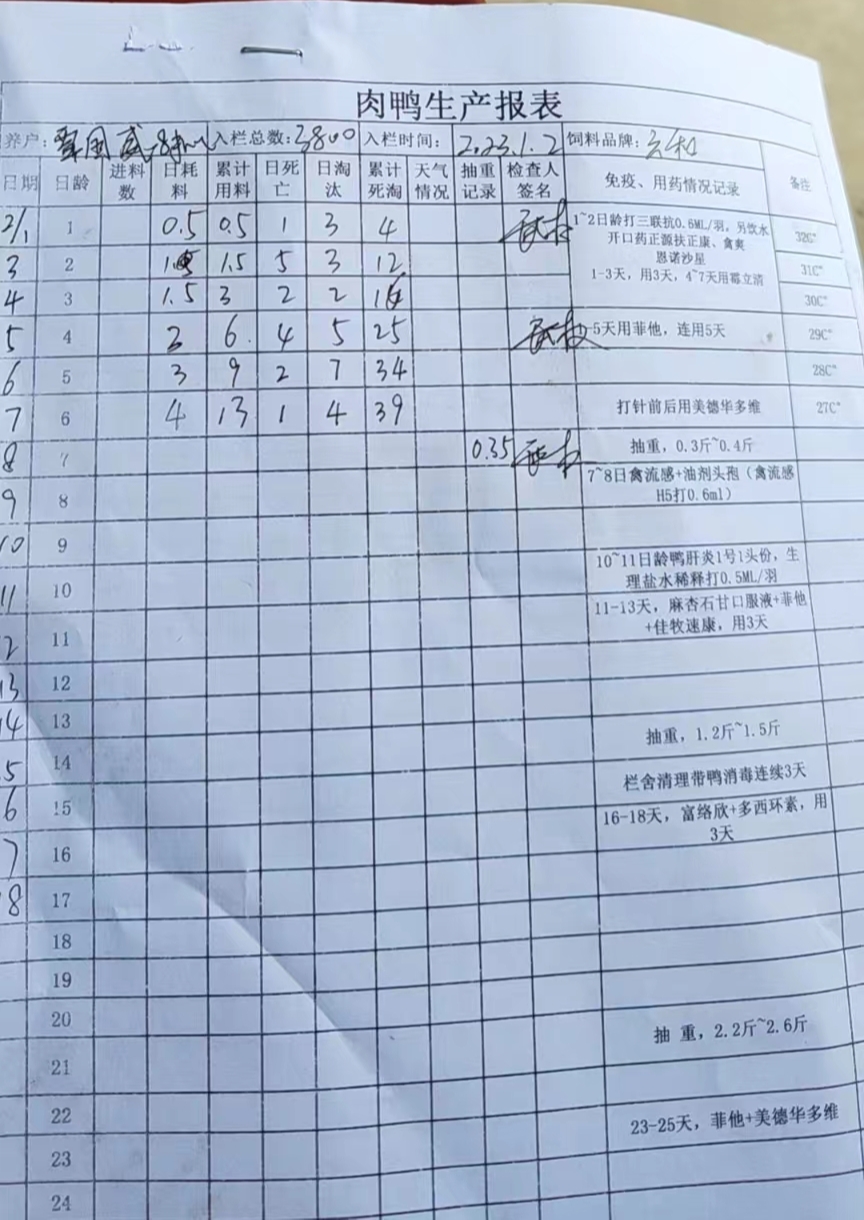 肉鸭生产报表
养户: 入栏总数:3800 入栏时间: 2023.1.2 饲料品牌:六和
日期 日龄 进料数 日耗料 累计用料 日死亡 日淘汰 累计死淘 天气情况 抽重记录 检查人签名 免疫、用药情况记录 备注
2/1 1 0.5 0.5 1 3 4 1~2日龄打三联抗0.6ML/羽,另饮水
开口药正源扶正康、禽爽
恩诺沙星
1-3天,用3天,4~7天用霉立清 32C°
3 2 1.5 5 3 12 31C°
4 3 1.5 3 2 2 16 30C°
5 4 2 6 4 5 25 -5天用菲他,连用5天 29C°
6 5 3 9 2 7 34 28C°
7 6 4 13 1 4 39 打针前后用美德华多维 27C°
8 7 0.35 抽重,0.3斤~0.4斤
9 8 7~8日禽流感+油剂头孢(禽流感
H5打0.6ml)
10 9
11 10 10~11日龄鸭肝炎1号1头份,生
理盐水稀释打0.5ML/羽
2 11 11-13天,麻杏石甘口服液+菲他
+佳牧速康,用3天
13 12
14 13 抽重,1.2斤~1.5斤
5 14 栏舍清理带鸭消毒连续3天
6 15 16-18天,富络欣+多西环素,用
3天
7 16
18 17
18
19
20 抽 重,2.2斤~2.6斤
21
22 23-25天,菲他+美德华多维
23
24